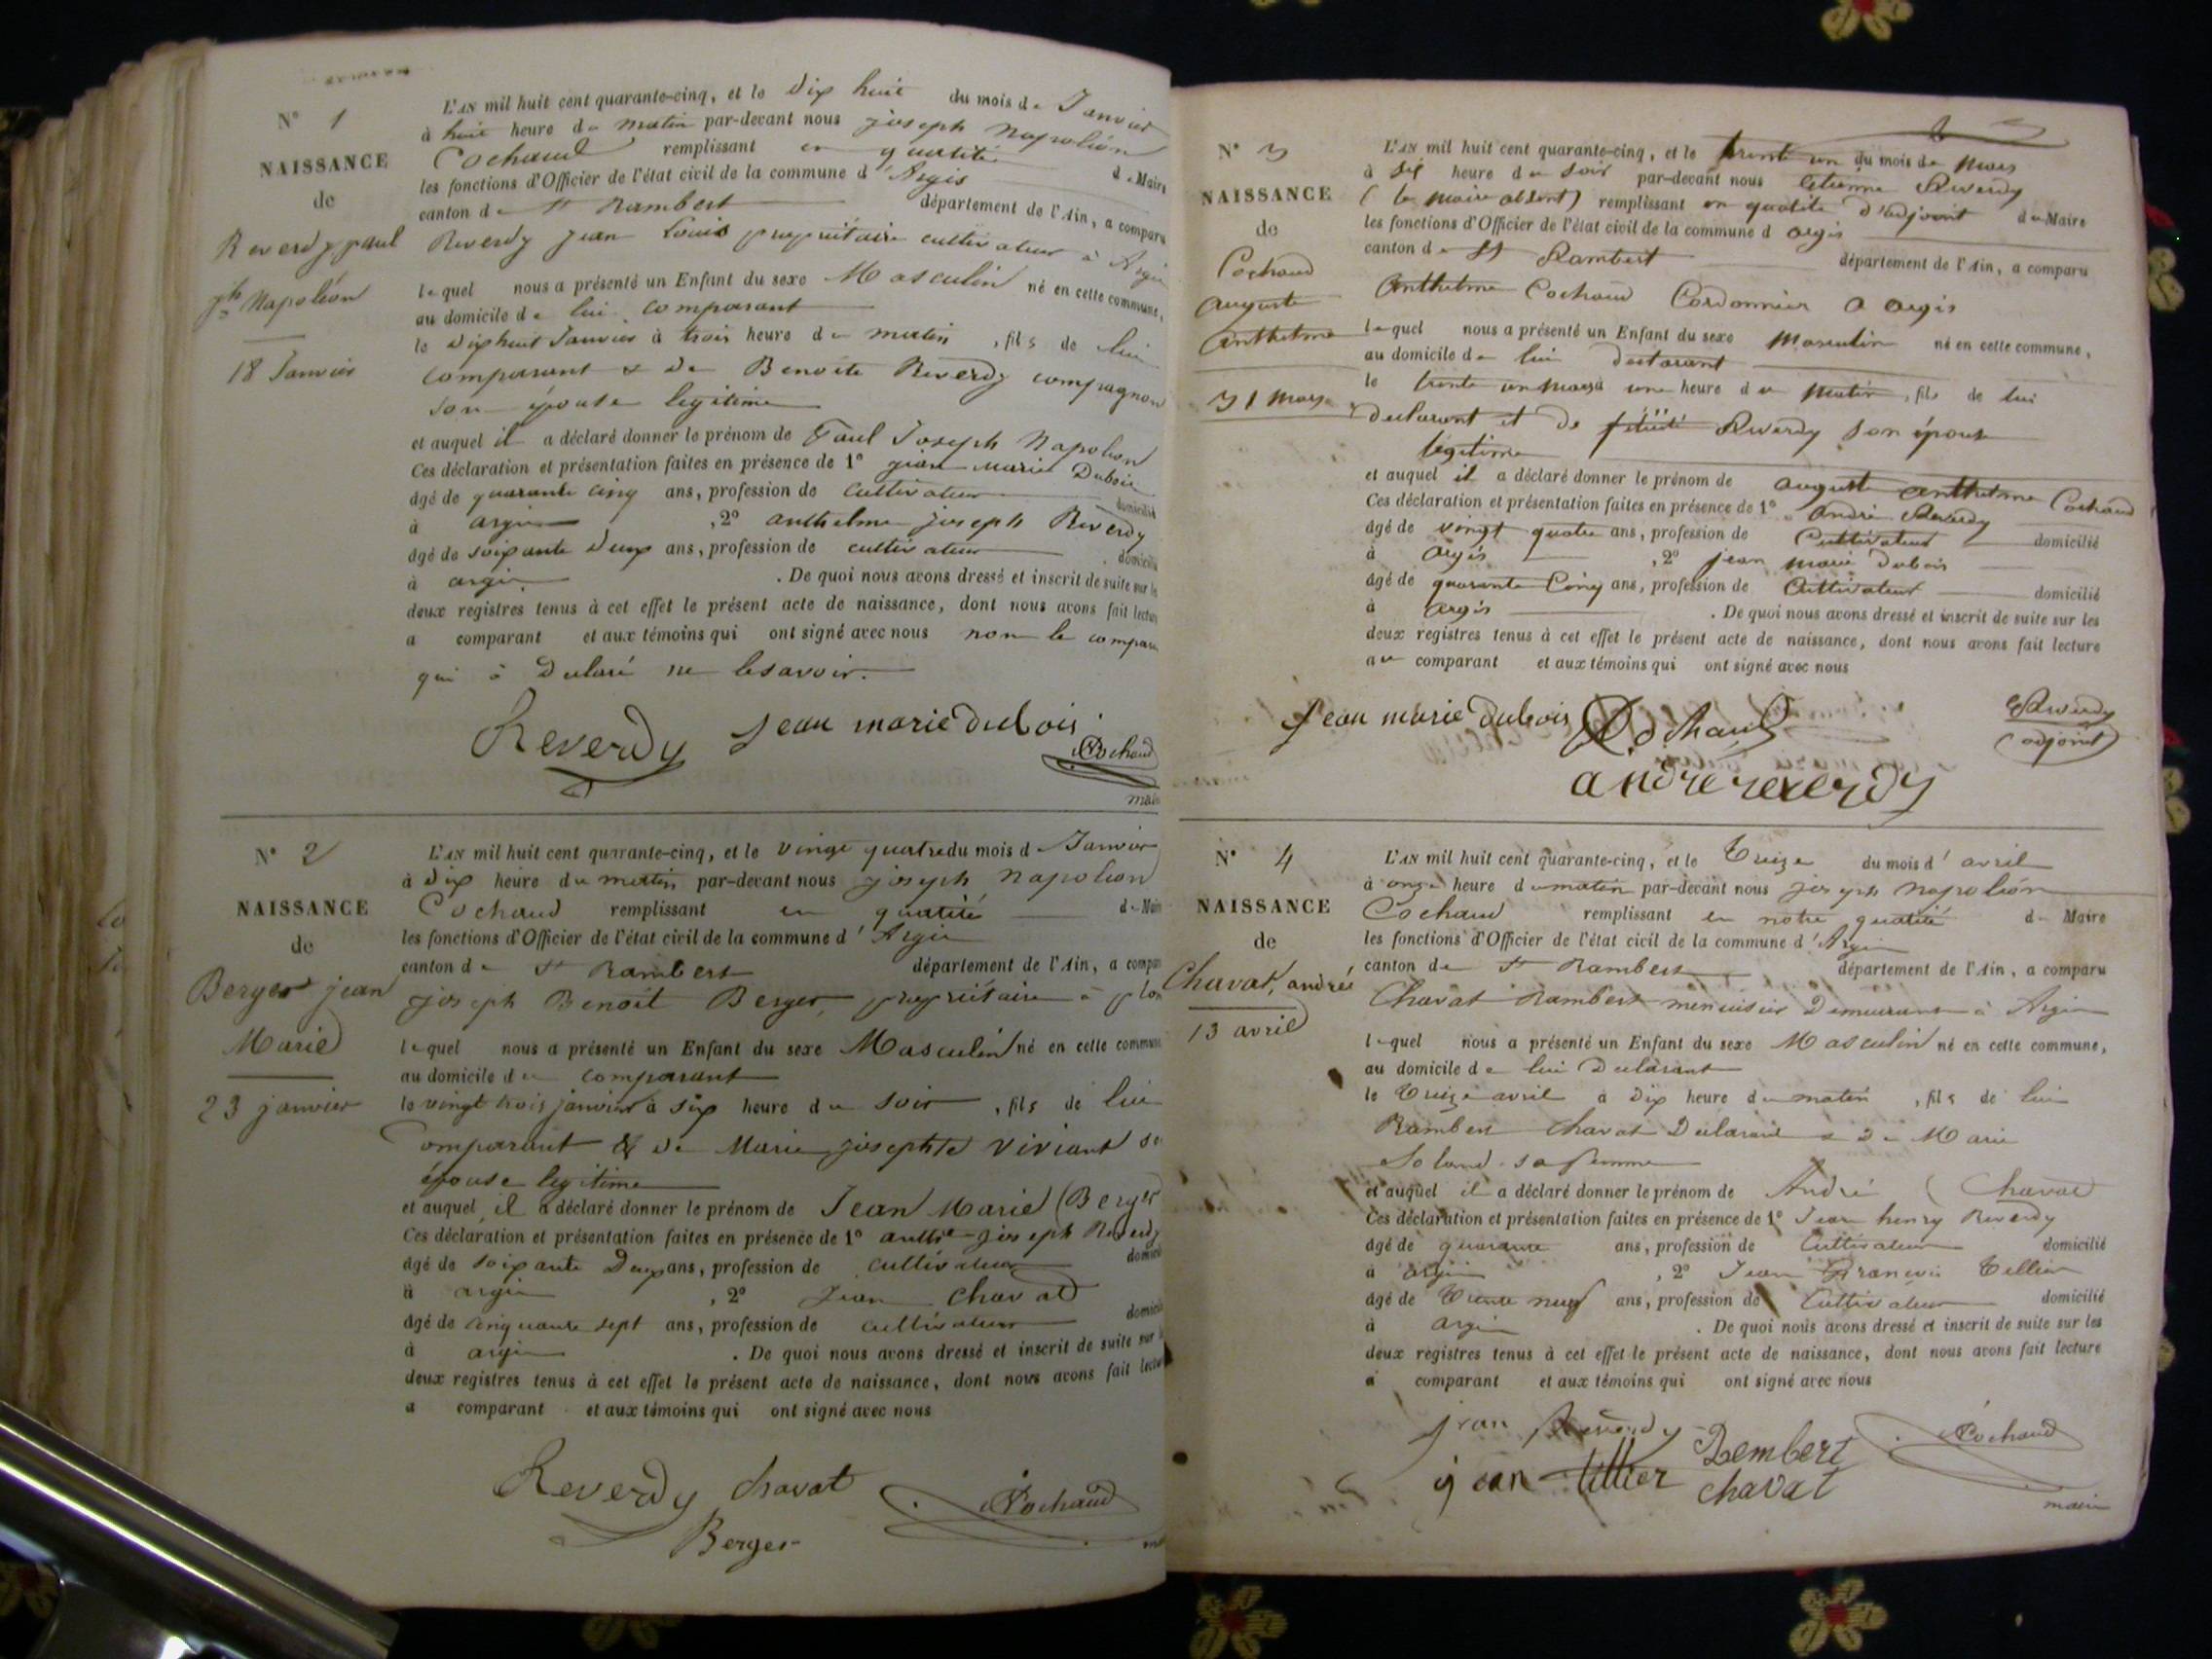 N° 1
NAISSANCE
de
Reverdy paul
jh Napoléon
18 Janvier
L'AN mil huit cent quarante-cinq, et le dix huit du mois de Janvier
à huit heure du matin par-devant nous joseph napoléon
Cochaud remplissant en qualité de Maire
les fonctions d'Officier de l'état civil de la commune d'Argis
canton de St Rambert département de l'Ain, a comparu
Reverdy jean Louis propriétaire cultivateur à Argis
lequel nous a présenté un Enfant du sexe Masculin né en cette commune,
au domicile de lui comparant
le dixhuit Janvier à trois heure du matin, fils de lui
comparant & de Benoite Reverdy compagnon
son épouse legitime
et auquel il a déclaré donner le prénom de Paul Joseph Napoleon
Ces déclaration et présentation faites en présence de 1° jean marie Dubois
âgé de quarante cinq ans, profession de cultivateur domicilié
à argis, 2° anthelme joseph Reverdy
âgé de soixante deux ans, profession de cultivateur domicilié
à argis. De quoi nous avons dressé et inscrit de suite sur les
deux registres tenus à cet effet le présent acte de naissance, dont nous avons fait lecture
a comparant et aux témoins qui ont signé avec nous non le compar
qui à Declaré ne le savoir.
Reverdy jean marie dubois Cochaud
maire
N° 2
NAISSANCE
de
Berger jean
Marie
23 janvier
L'AN mil huit cent quarante-cinq, et le vingt quatre du mois d Janvier
à dix heure du matin par-devant nous joseph napoléon
Cochaud remplissant en qualité de Maire
les fonctions d'Officier de l'état civil de la commune d'Argis
canton de St Rambert département de l'Ain, a comparu
joseph Benoit Berger, propriétaire à
lequel nous a présenté un Enfant du sexe Masculin né en cette commune
au domicile du comparant
le vingt trois janvier à six heure du soir, fils de lui
Comparant & de Marie josephte Viviant so
épouse legitime
et auquel il a déclaré donner le prénom de Jean Marie (Berger
Ces déclaration et présentation faites en présence de 1° anthe joseph Reverdy
âgé de soixante Deux ans, profession de cultivateur domicilié
à argis, 2° Jean Chavat
âgé de cinquante sept ans, profession de cultivateur domicilié
à argis. De quoi nous avons dressé et inscrit de suite sur
deux registres tenus à cet effet le présent acte de naissance, dont nous avons fait lecture
a comparant et aux témoins qui ont signé avec nous
Reverdy chavat Cochaud
Berger
N° 3
NAISSANCE
de
Cochaud
auguste
anthelme
31 mars
L'AN mil huit cent quarante-cinq, et le trente un du mois de mars
à six heure du soir par-devant nous etienne Reverdy
(le maire absent) remplissant en qualité d'adjoint du Maire
les fonctions d'Officier de l'état civil de la commune d argis
canton de St Rambert département de l'Ain, a comparu
Anthelme Cochaud Cordonnier a argis
lequel nous a présenté un Enfant du sexe masculin né en cette commune,
au domicile de lui declarant
le trente un mars à une heure du matin, fils de lui
declarant et de Reverdy son épouse
légitime
et auquel il a déclaré donner le prénom de auguste anthelme Cochaud
Ces déclaration et présentation faites en présence de 1° andré Reverdy
âgé de vingt quatre ans, profession de Cultivateur domicilié
à argis, 2° jean marie Dubois
âgé de quarante Cinq ans, profession de Cultivateur domicilié
à argis. De quoi nous avons dressé et inscrit de suite sur les
deux registres tenus à cet effet le présent acte de naissance, dont nous avons fait lecture
au comparant et aux témoins qui ont signé avec nous
jean marie dubois Cochaud Reverdy
adjoint
andre reverdy
N° 4
NAISSANCE
de
Chavat, andré
13 avril
L'AN mil huit cent quarante-cinq, et le treize du mois d'avril
à onze heure du matin par-devant nous joseph napoléon
Cochaud remplissant en notre qualité de Maire
les fonctions d'Officier de l'état civil de la commune d'Argis
canton de St Rambert département de l'Ain, a comparu
Chavat Rambert menuisier Demeurant à Argis
lequel nous a présenté un Enfant du sexe Masculin né en cette commune,
au domicile de lui Declarant
le treize avril à dix heure du matin, fils de lui
Rambert Chavat Declarant & de Marie
Soland sa femme
et auquel il a déclaré donner le prénom de André (Chavat
Ces déclaration et présentation faites en présence de 1° Jean henry Reverdy
âgé de quarante ans, profession de Cultivateur domicilié
à argis, 2° Jean François Tellier
âgé de trente neuf ans, profession de Cultivateur domicilié
à argis. De quoi nous avons dressé et inscrit de suite sur les
deux registres tenus à cet effet le présent acte de naissance, dont nous avons fait lecture
a comparant et aux témoins qui ont signé avec nous
jean Reverdy Rembert Cochaud
jean tillier chavat
maire